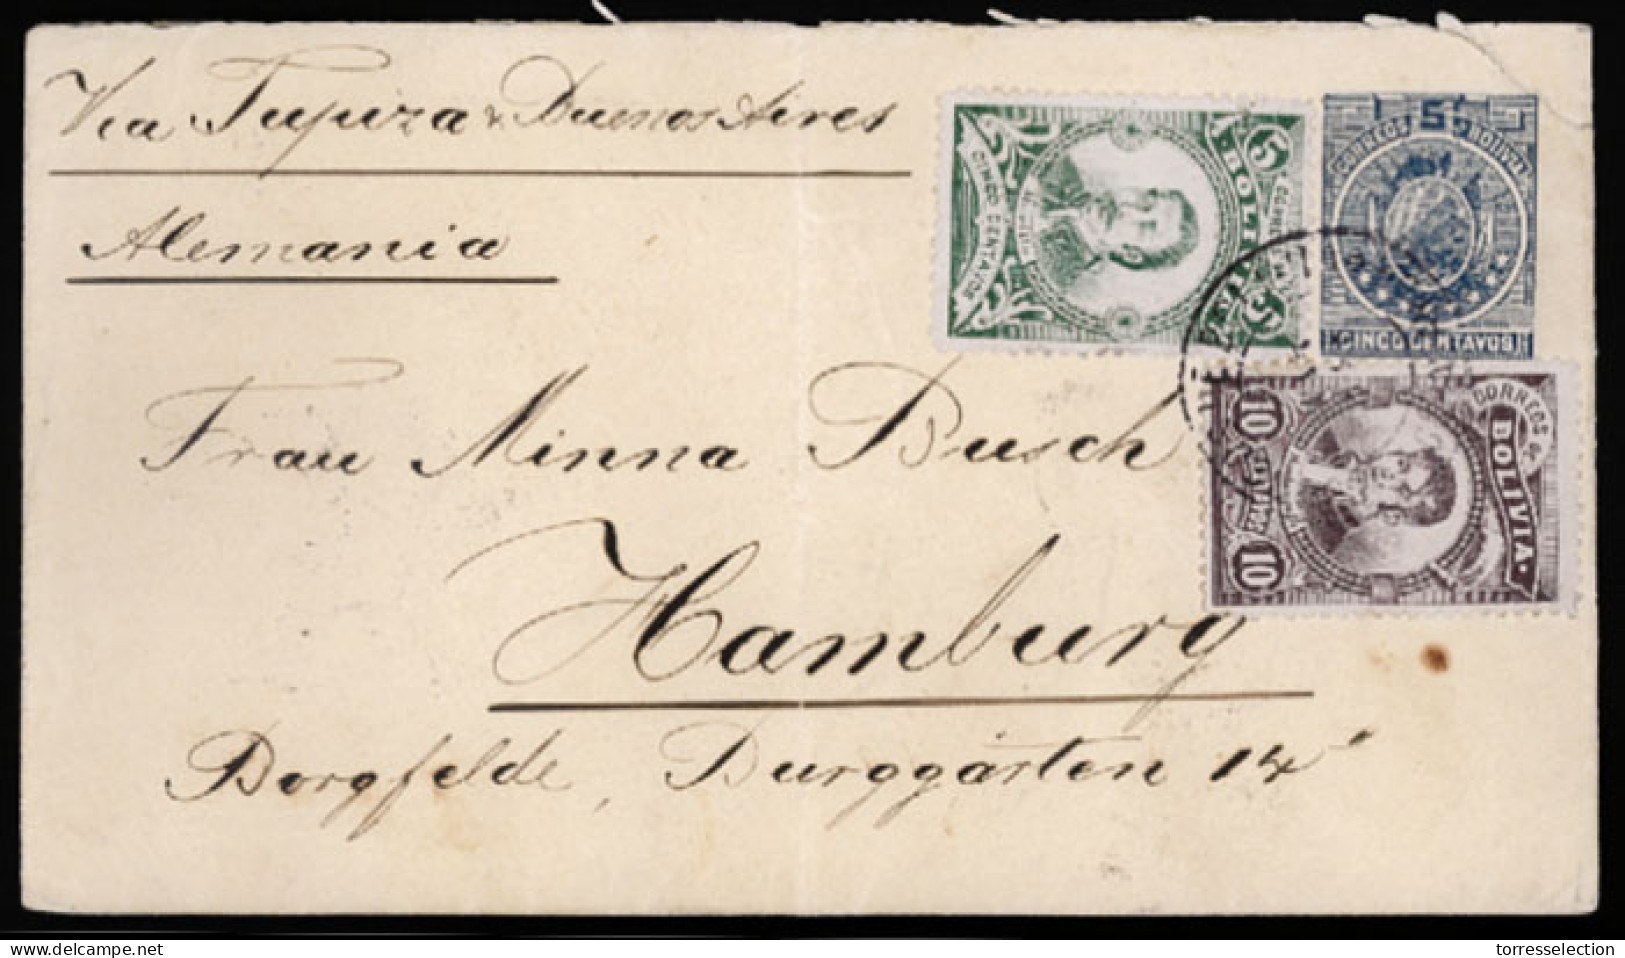 Via Tupiza & Buenos Aires
Alemania
5 BOLIVIA 5
CINCO CENTAVOS
CORREOS 5 BOLIVIA
CINCO CENTAVOS
CORREOS de
BOLIVIA
10 10
Frau Minna Busch
Hamburg
Borgfelde, Burggarten 14
delcampe.net
torresselection